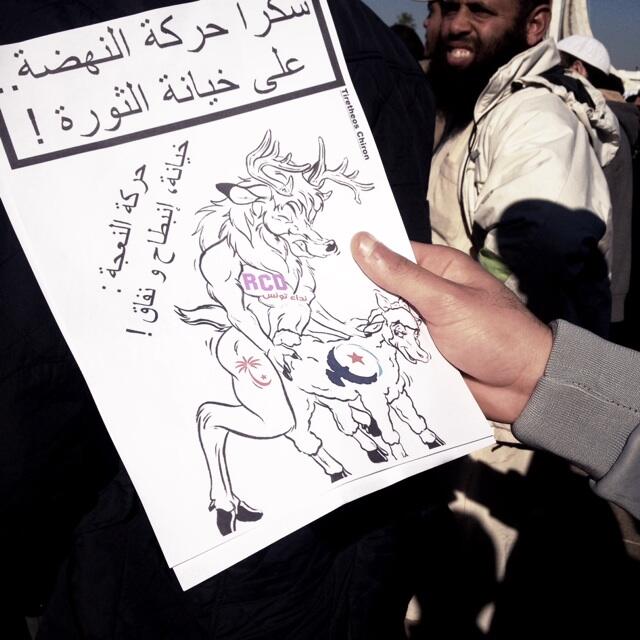 شكرا حركة النهضة..
على خيانة الثورة !
Tiretheos Chiron
حركة النعجة :
خيانة، إنبطاح و نفاق !
RCD
نداء تونس